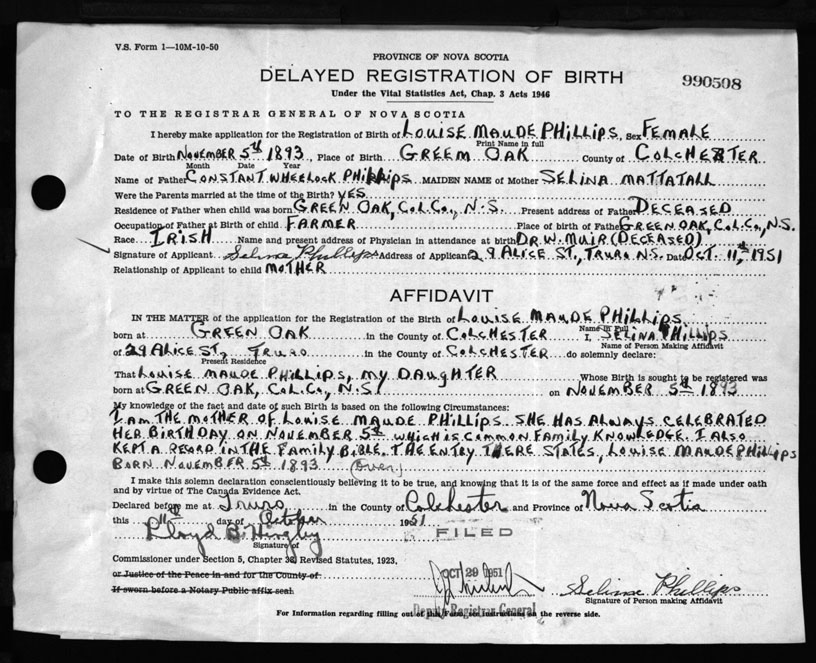 V.S. Form 1—10M-10-50
PROVINCE OF NOVA SCOTIA
DELAYED REGISTRATION OF BIRTH
990508
Under the Vital Statistics Act, Chap. 3 Acts 1946
TO THE REGISTRAR GENERAL OF NOVA SCOTIA
I hereby make application for the Registration of Birth of LOUISE MAUDE PHILLIPS, Sex FEMALE
Print Name in full
Date of Birth NOVEMBER 5th 1893, Place of Birth GREEM OAK County of COLCHESTER
Month Date Year
Name of Father CONSTANT WHEELOCK PHILLIPS MAIDEN NAME of Mother SELINA MATTATALL
Were the Parents married at the time of the Birth? YES
Residence of Father when child was born GREEN OAK, COL. CO., N.S. Present address of Father DECEASED
Occupation of Father at Birth of child FARMER Place of birth of Father GREEN OAK, COL. CO., N.S.
Race IRISH Name and present address of Physician in attendance at birth DR. W. MUIR (DECEASED)
Signature of Applicant Selina Phillips Address of Applicant 29 ALICE ST., TRURO N.S. Date OCT. 11th, 1951
Relationship of Applicant to child MOTHER
AFFIDAVIT
IN THE MATTER of the application for the Registration of the Birth of LOUISE MAUDE PHILLIPS
Name in Full
born at GREEN OAK in the County of COLCHESTER I, SELINA PHILLIPS
Name of Person Making Affidavit
of 29 ALICE ST, TRURO in the County of COLCHESTER do solemnly declare:
Present Residence
That LOUISE MAUDE PHILLIPS, MY DAUGHTER Whose Birth is sought to be registered was
born at GREEN OAK, COL. CO., N.S. on NOVEMBER 5th 1893
My knowledge of the fact and date of such Birth is based on the following Circumstances:
I AM THE MOTHER OF LOUISE MAUDE PHILLIPS. SHE HAS ALWAYS CELEBRATED
HER BIRTHDAY ON NOVEMBER 5th WHICH IS COMMON FAMILY KNOWLEDGE. I ALSO
KEPT A RECORD IN THE FAMILY BIBLE. THE ENTRY THERE STATES, LOUISE MAUDE PHILLIPS
BORN NOVEMBER 5th 1893 (over)
I make this solemn declaration conscientiously believing it to be true, and knowing that it is of the same force and effect as if made under oath
and by virtue of The Canada Evidence Act.
Declared before me at Truro in the County of Colchester and Province of Nova Scotia
this 11th day of October 1951
Lloyd B. Hingley
FILED
Signature of
Commissioner under Section 5, Chapter 38, Revised Statutes, 1923,
or Justice of the Peace in and for the County of
OCT 29 1951
Selina Phillips
If sworn before a Notary Public affix seal.
Signature of Person making Affidavit
Deputy Registrar General
For Information regarding filling out of this Form, see instructions on the reverse side.